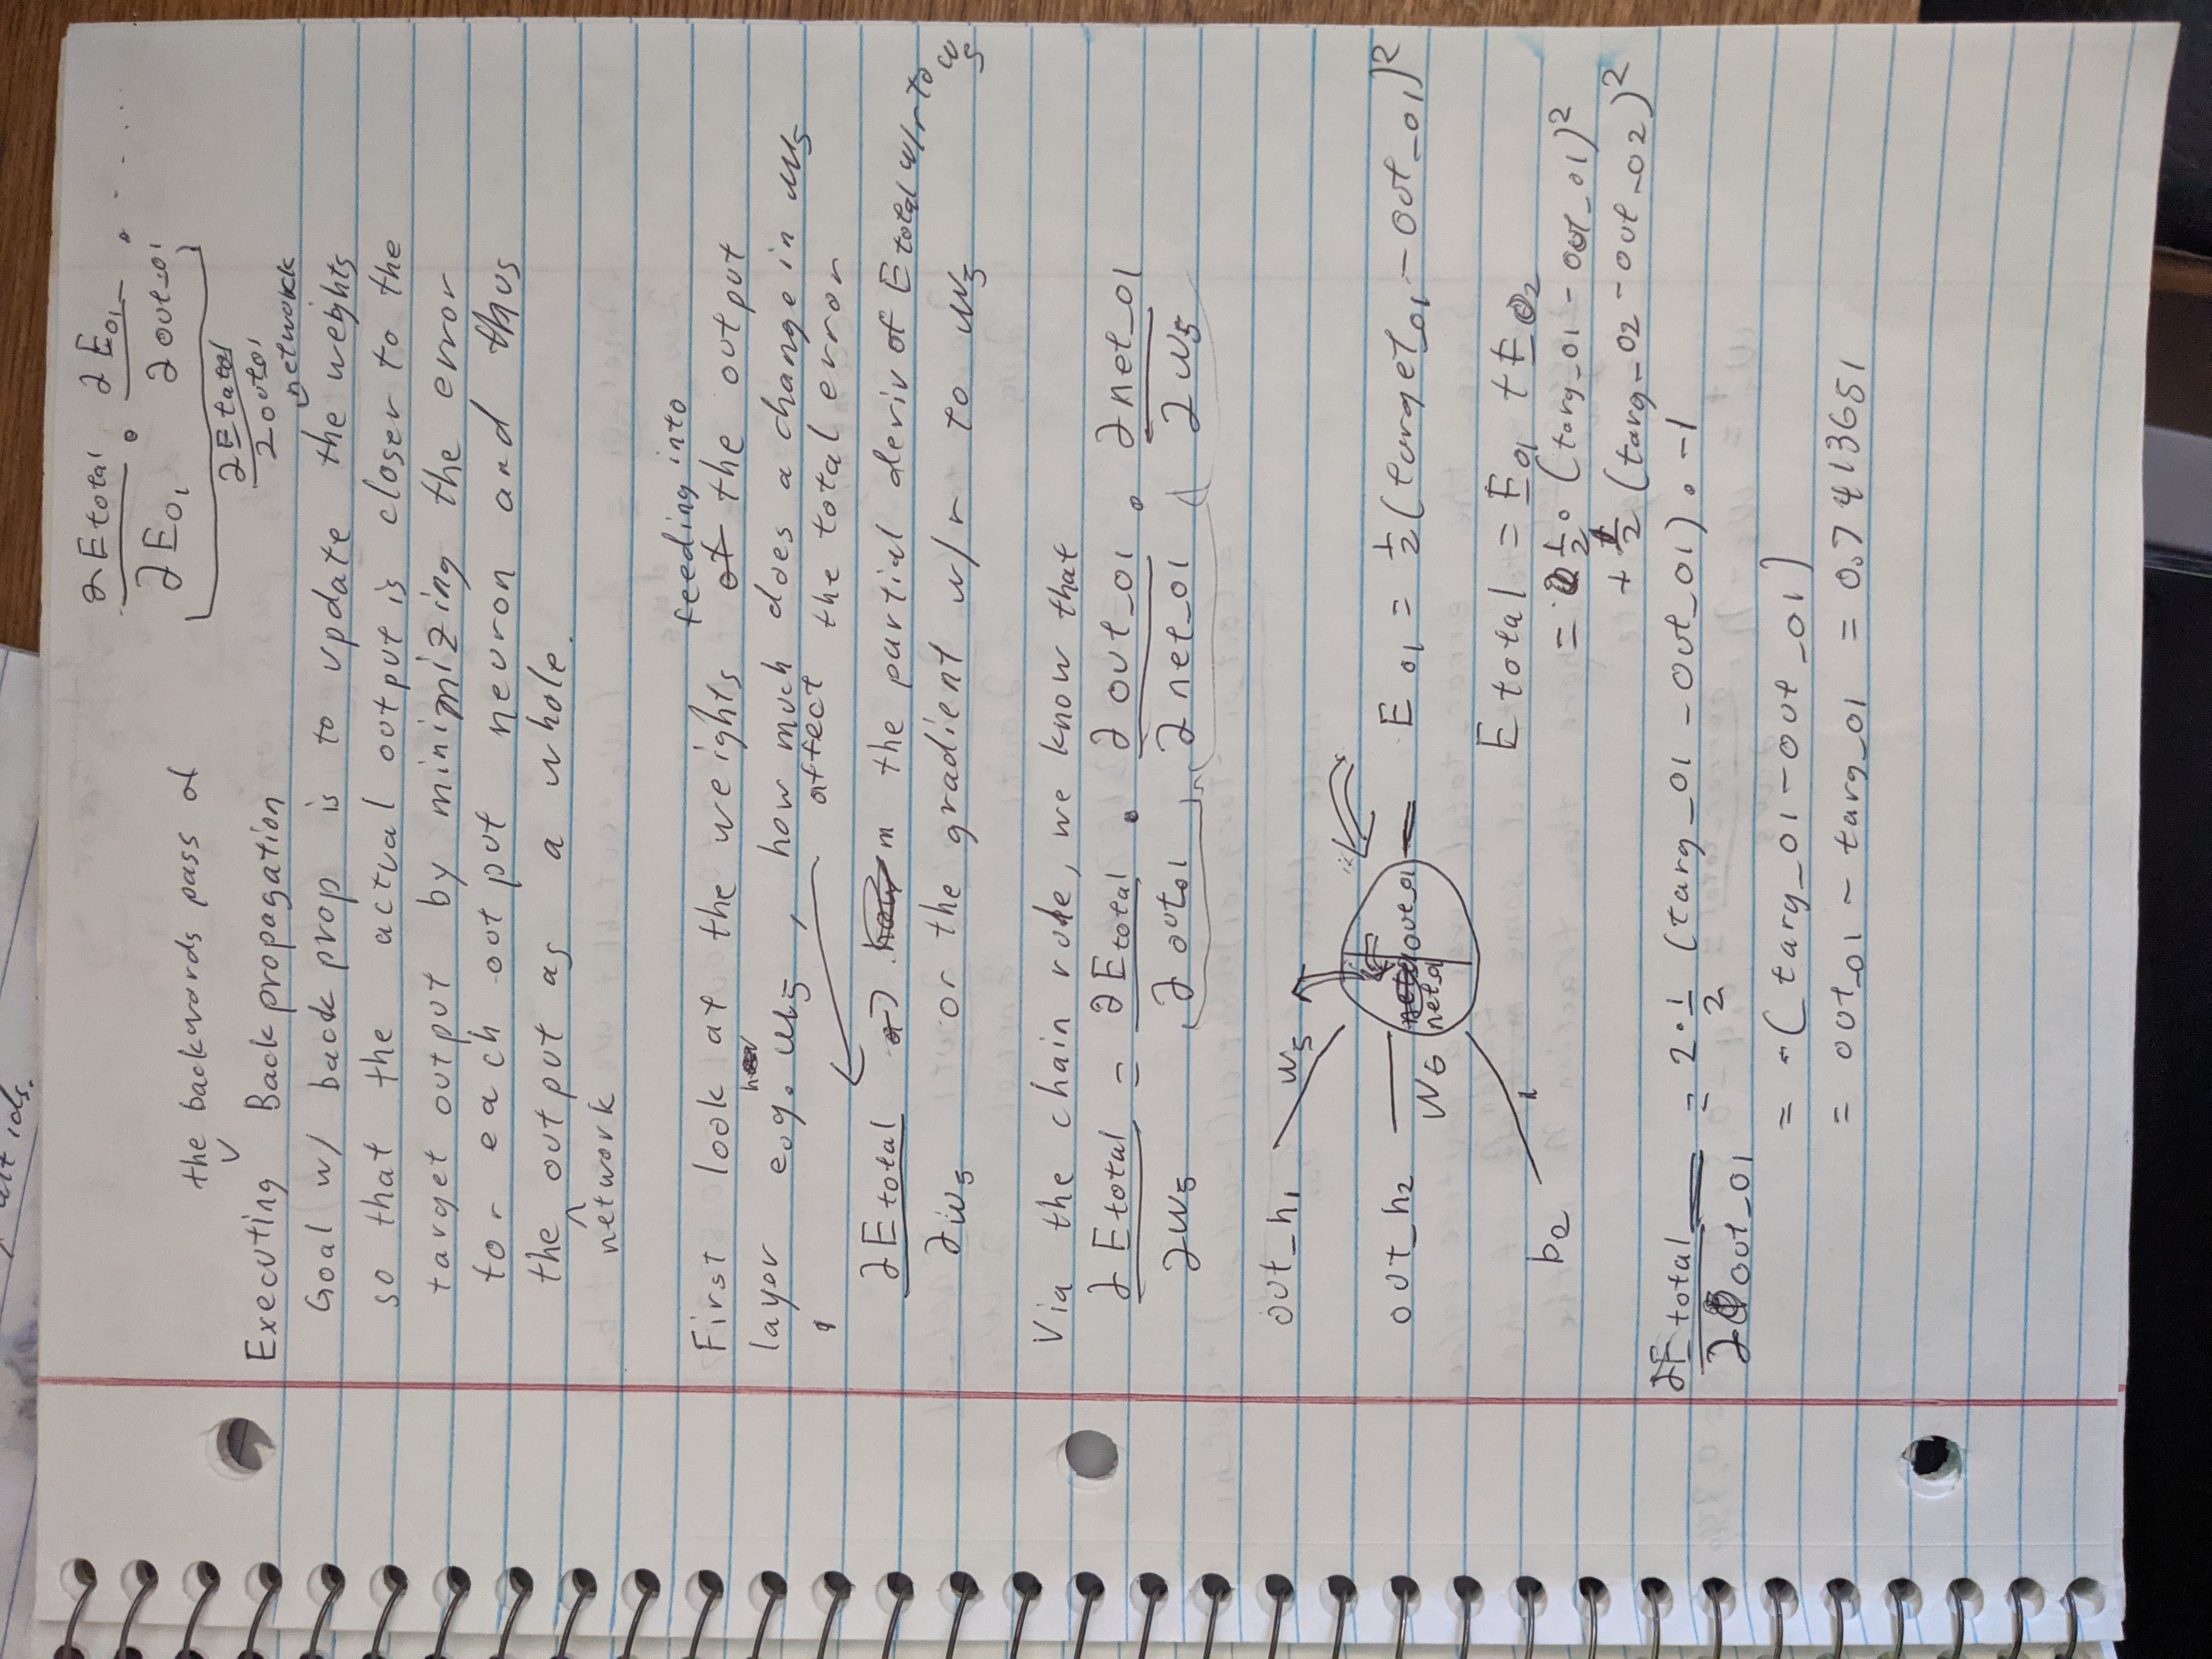 alt ids.
∂E total / ∂E o1 · ∂E o1 / ∂out_o1 · . . . . .
∂E total / ∂out o1
the backwards pass of
Executing Back propagation
network
Goal w/ back prop is to update the weights
so that the actual output is closer to the
target output by minimizing the error
for each output neuron and thus
the output as a whole.
network
feeding into
First look at the weights of the output
layer e.g. w5, how much does a change in w5
affect the total error
∂E total / ∂w5 → the partial deriv of E total w/r to w5
or the gradient w/r to w5
Via the chain rule, we know that
∂E total / ∂w5 = ∂E total / ∂out o1 · ∂out_o1 / ∂net_o1 · ∂net_o1 / ∂w5
out_h1 w5
out_h2 w6 net o1 out_o1 E o1 = 1/2 (target_o1 - out_o1)²
b2 1
E total = E o1 + E o2
= 1/2 · (targ_o1 - out_o1)²
+ 1/2 (targ_o2 - out_o2)²
∂E total / ∂out_o1 = 2 · 1/2 (targ_o1 - out_o1) · -1
= -(targ_o1 - out_o1)
= out_o1 - targ_o1 = 0.7413651